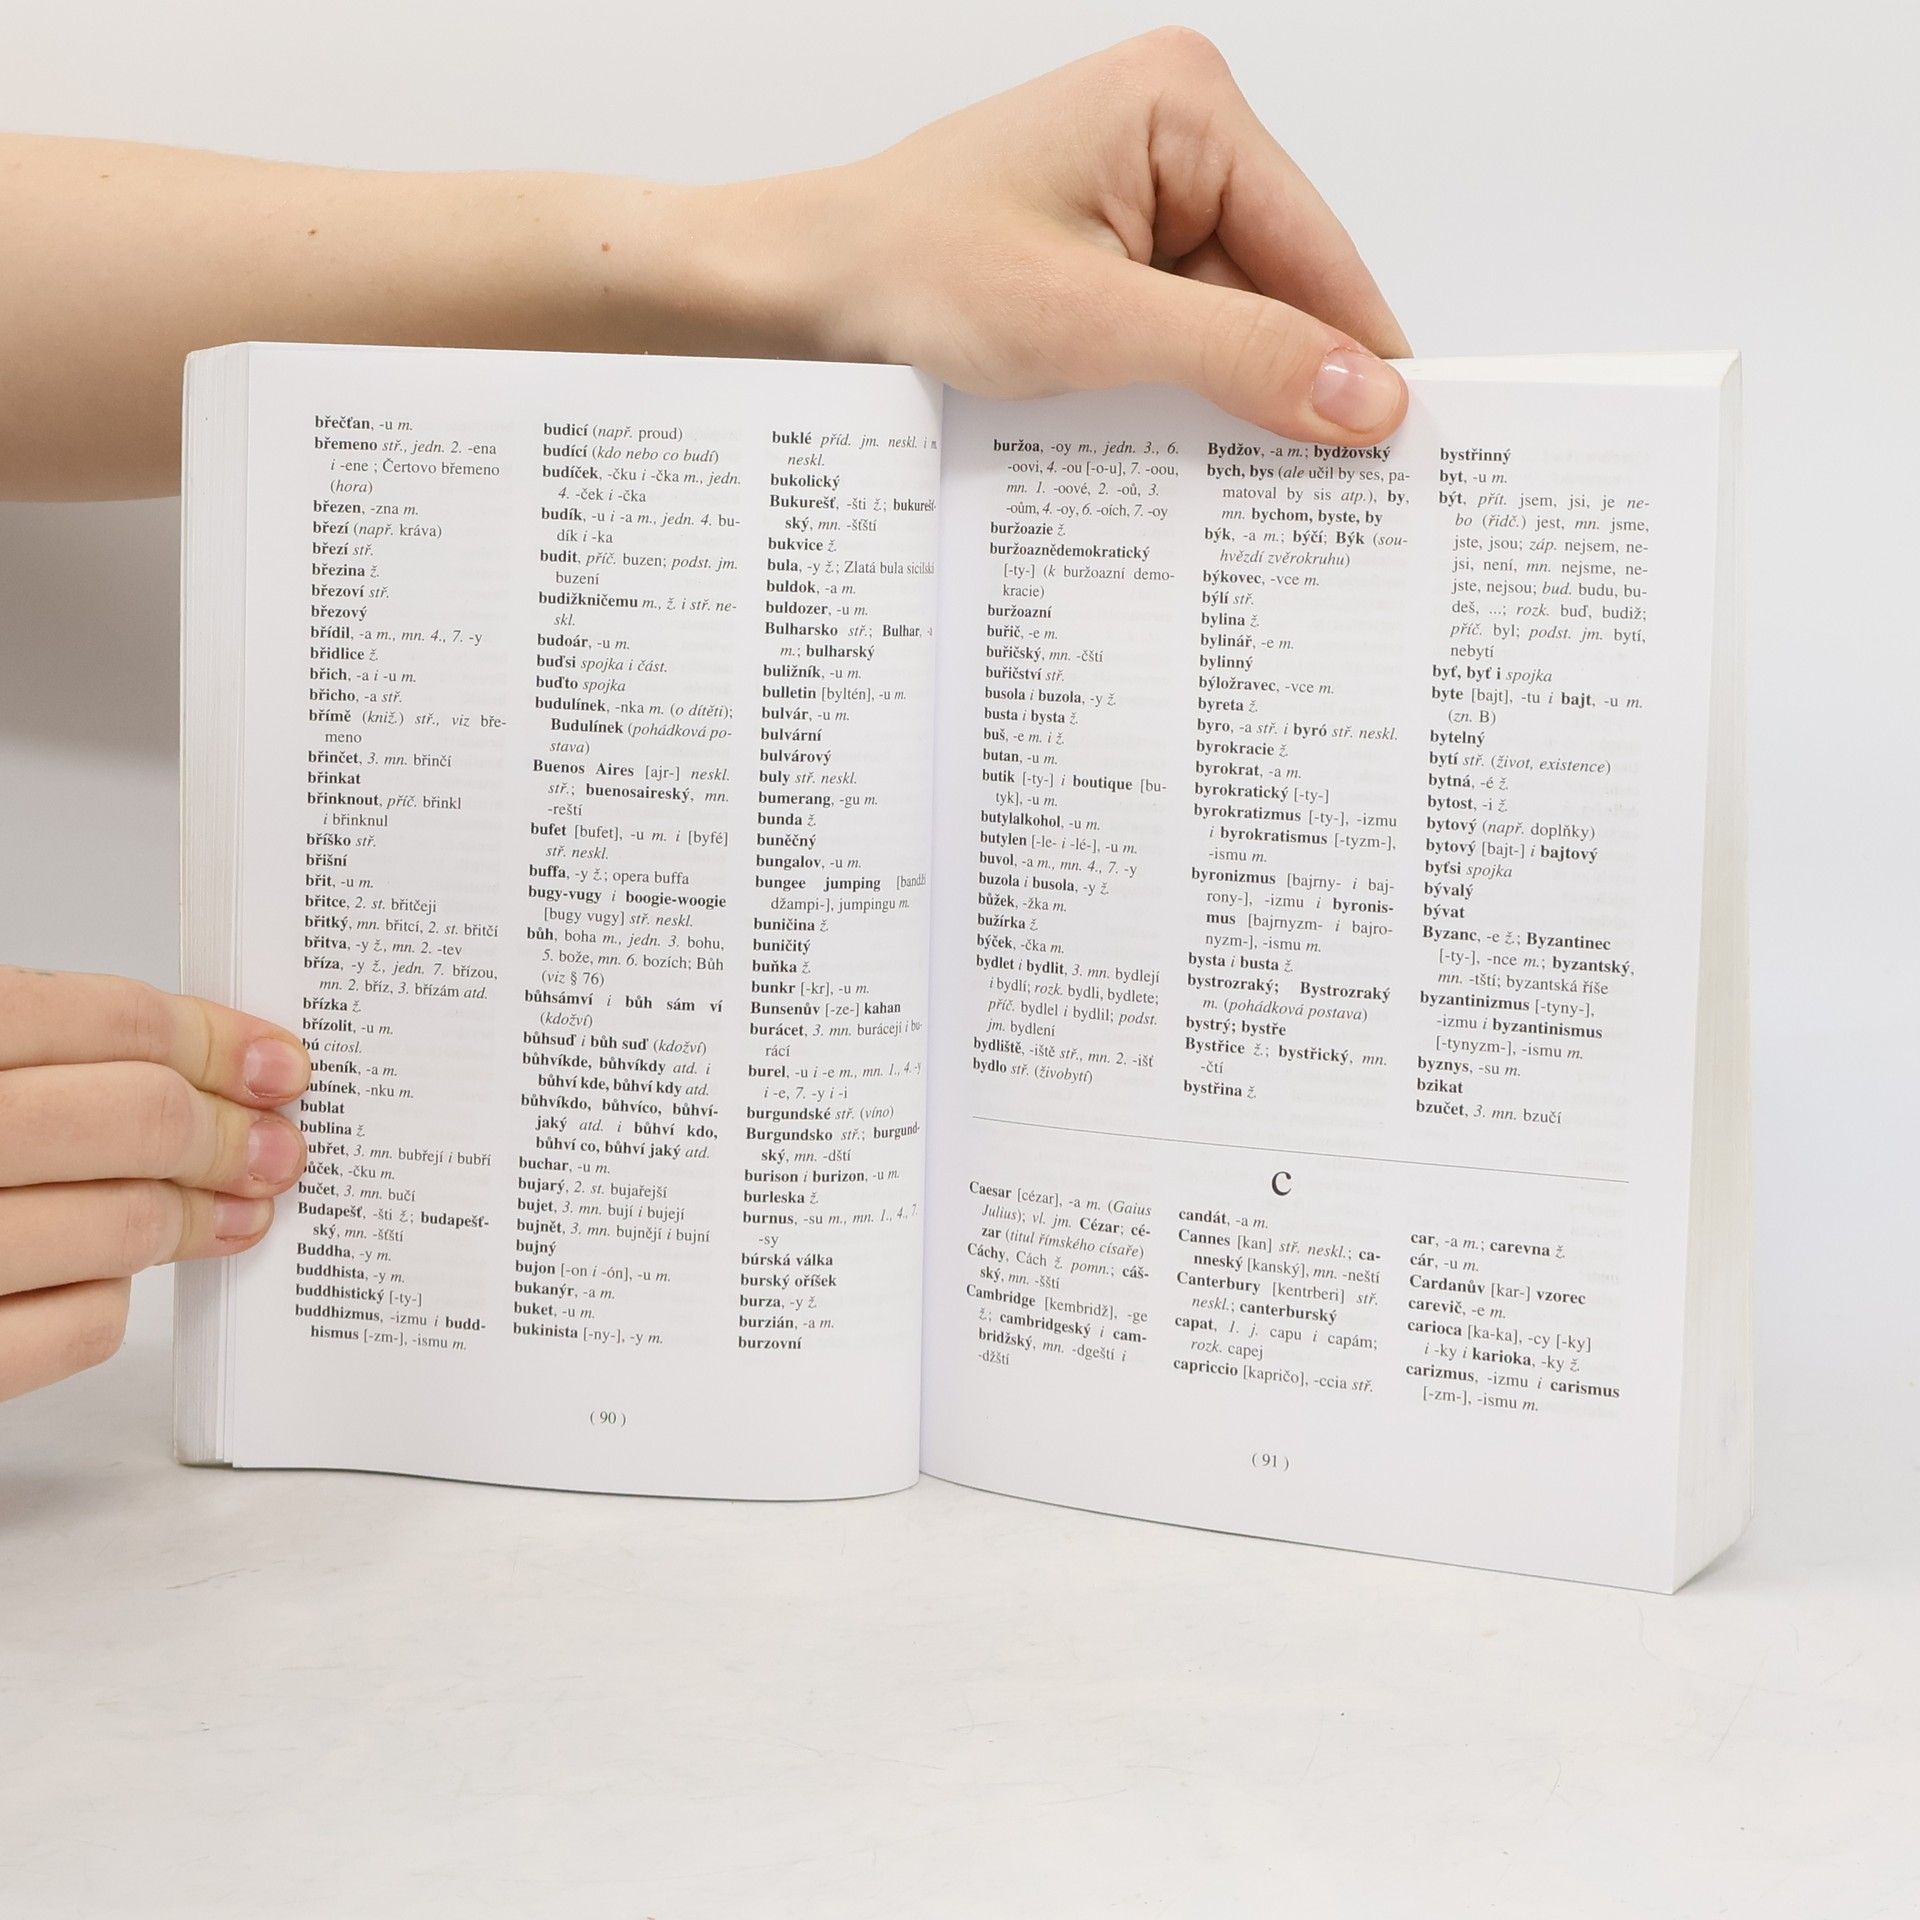 břečťan, -u m.
břemeno stř., jedn. 2. -ena
i -ene ; Čertovo břemeno
(hora)
březen, -zna m.
březí (např. kráva)
březí stř.
březina ž.
březoví stř.
březový
břídil, -a m., mn. 4., 7. -y
břidlice ž.
břich, -a i -u m.
břicho, -a stř.
břímě (kniž.) stř., viz bře-
meno
břinčet, 3. mn. břinčí
břinkat
břinknout, příč. břinkl
i břinknul
bříško stř.
břišní
břit, -u m.
břitce, 2. st. břitčeji
břitký, mn. břitcí, 2. st. břitčí
břitva, -y ž., mn. 2. -tev
bříza, -y ž., jedn. 7. břízou,
mn. 2. bříz, 3. břízám atd.
břízka ž.
břízolit, -u m.
bú citosl.
ubeník, -a m.
ubínek, -nku m.
bublat
bublina ž.
ubřet, 3. mn. bubřejí i bubří
ůček, -čku m.
bučet, 3. mn. bučí
Budapešť, -šti ž.; budapešť-
ský, mn. -šťští
Buddha, -y m.
buddhista, -y m.
buddhistický [-ty-]
buddhizmus, -izmu i budd-
hismus [-zm-], -ismu m.
budicí (např. proud)
budící (kdo nebo co budí)
budíček, -čku i -čka m., jedn.
4. -ček i -čka
budík, -u i -a m., jedn. 4. bu-
dík i -ka
budit, příč. buzen; podst. jm.
buzení
budižkničemu m., ž. i stř. ne-
skl.
budoár, -u m.
buďsi spojka i část.
buďto spojka
budulínek, -nka m. (o dítěti);
Budulínek (pohádková po-
stava)
Buenos Aires [ajr-] neskl.
stř.; buenosaireský, mn.
-reští
bufet [bufet], -u m. i [byfé]
stř. neskl.
buffa, -y ž.; opera buffa
bugy-vugy i boogie-woogie
[bugy vugy] stř. neskl.
bůh, boha m., jedn. 3. bohu,
5. bože, mn. 6. bozích; Bůh
(viz § 76)
bůhsámví i bůh sám ví
(kdožví)
bůhsuď i bůh suď (kdožví)
bůhvíkde, bůhvíkdy atd. i
bůhví kde, bůhví kdy atd.
bůhvíkdo, bůhvíco, bůhví-
jaký atd. i bůhví kdo,
bůhví co, bůhví jaký atd.
buchar, -u m.
bujarý, 2. st. bujařejší
bujet, 3. mn. bují i bujejí
bujnět, 3. mn. bujnějí i bujní
bujný
bujon [-on i -ón], -u m.
bukanýr, -a m.
buket, -u m.
bukinista [-ny-], -y m.
buklé příd. jm. neskl. i m.
neskl.
bukolický
Bukurešť, -šti ž.; bukurešť-
ský, mn. -šťští
bukvice ž.
bula, -y ž.; Zlatá bula sicilská
buldok, -a m.
buldozer, -u m.
Bulharsko stř.; Bulhar, -a
m.; bulharský
buližník, -u m.
bulletin [byltén], -u m.
bulvár, -u m.
bulvární
bulvárový
buly stř. neskl.
bumerang, -gu m.
bunda ž.
buněčný
bungalov, -u m.
bungee jumping [bandži
džampi-], jumpingu m.
buničina ž.
buničitý
buňka ž.
bunkr [-kr], -u m.
Bunsenův [-ze-] kahan
burácet, 3. mn. burácejí i bu-
rácí
burel, -u i -e m., mn. 1., 4. -y
i -e, 7. -y i -i
burgundské stř. (víno)
Burgundsko stř.; burgund-
ský, mn. -dští
burison i burizon, -u m.
burleska ž.
burnus, -su m., mn. 1., 4., 7.
-sy
búrská válka
burský oříšek
burza, -y ž.
burzián, -a m.
burzovní
( 90 )
buržoa, -oy m., jedn. 3., 6.
-oovi, 4. -ou [-o-u], 7. -oou,
mn. 1. -oové, 2. -oů, 3.
-oům, 4. -oy, 6. -oích, 7. -oy
buržoazie ž.
buržoaznědemokratický
[-ty-] (k buržoazní demo-
kracie)
buržoazní
buřič, -e m.
buřičský, mn. -čští
buřičství stř.
busola i buzola, -y ž.
busta i bysta ž.
buš, -e m. i ž.
butan, -u m.
butik [-ty-] i boutique [bu-
tyk], -u m.
butylalkohol, -u m.
butylen [-le- i -lé-], -u m.
buvol, -a m., mn. 4., 7. -y
buzola i busola, -y ž.
bůžek, -žka m.
bužírka ž.
býček, -čka m.
bydlet i bydlit, 3. mn. bydlejí
i bydlí; rozk. bydli, bydlete;
příč. bydlel i bydlil; podst.
jm. bydlení
bydliště, -iště stř., mn. 2. -išť
bydlo stř. (živobytí)
Bydžov, -a m.; bydžovský
bych, bys (ale učil by ses, pa-
matoval by sis atp.), by,
mn. bychom, byste, by
býk, -a m.; býčí; Býk (sou-
hvězdí zvěrokruhu)
býkovec, -vce m.
býlí stř.
bylina ž.
bylinář, -e m.
bylinný
býložravec, -vce m.
byreta ž.
byro, -a stř. i byró stř. neskl.
byrokracie ž.
byrokrat, -a m.
byrokratický [-ty-]
byrokratizmus [-ty-], -izmu
i byrokratismus [-tyzm-],
-ismu m.
byronizmus [bajrny- i baj-
rony-], -izmu i byronis-
mus [bajrnyzm- i bajro-
nyzm-], -ismu m.
bysta i busta ž.
bystrozraký; Bystrozraký
m. (pohádková postava)
bystrý; bystře
Bystřice ž.; bystřický, mn.
-čtí
bystřina ž.
bystřinný
byt, -u m.
být, přít. jsem, jsi, je ne-
bo (řidč.) jest, mn. jsme,
jste, jsou; záp. nejsem, ne-
jsi, není, mn. nejsme, ne-
jste, nejsou; bud. budu, bu-
deš, ...; rozk. buď, budiž;
příč. byl; podst. jm. bytí,
nebytí
byť, byť i spojka
byte [bajt], -tu i bajt, -u m.
(zn. B)
bytelný
bytí stř. (život, existence)
bytná, -é ž.
bytost, -i ž.
bytový (např. doplňky)
bytový [bajt-] i bajtový
byťsi spojka
bývalý
bývat
Byzanc, -e ž.; Byzantinec
[-ty-], -nce m.; byzantský,
mn. -tští; byzantská říše
byzantinizmus [-tyny-],
-izmu i byzantinismus
[-tynyzm-], -ismu m.
byznys, -su m.
bzikat
bzučet, 3. mn. bzučí
C
Caesar [cézar], -a m. (Gaius
Julius); vl. jm. Cézar; cé-
zar (titul římského císaře)
Cáchy, Cách ž. pomn.; cáš-
ský, mn. -šští
Cambridge [kembridž], -ge
ž.; cambridgeský i cam-
bridžský, mn. -dgeští i
-džští
candát, -a m.
Cannes [kan] stř. neskl.; ca-
nneský [kanský], mn. -neští
Canterbury [kentrberi] stř.
neskl.; canterburský
capat, 1. j. capu i capám;
rozk. capej
capriccio [kapričo], -ccia stř.
car, -a m.; carevna ž.
cár, -u m.
Cardanův [kar-] vzorec
carevič, -e m.
carioca [ka-ka], -cy [-ky]
i -ky i karioka, -ky ž.
carizmus, -izmu i carismus
[-zm-], -ismu m.
( 91 )